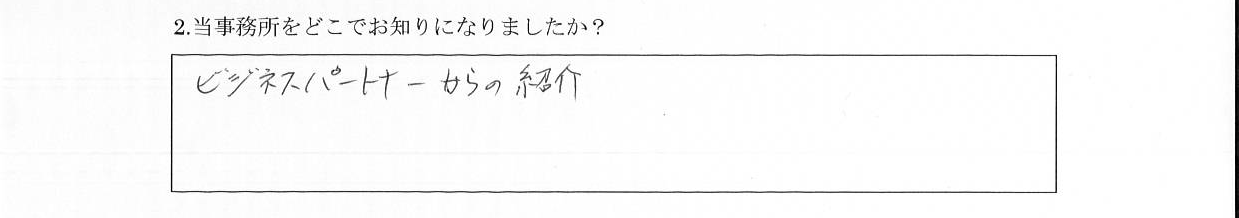 2.当事務所をどこでお知りになりましたか？
ビジネスパートナーからの紹介